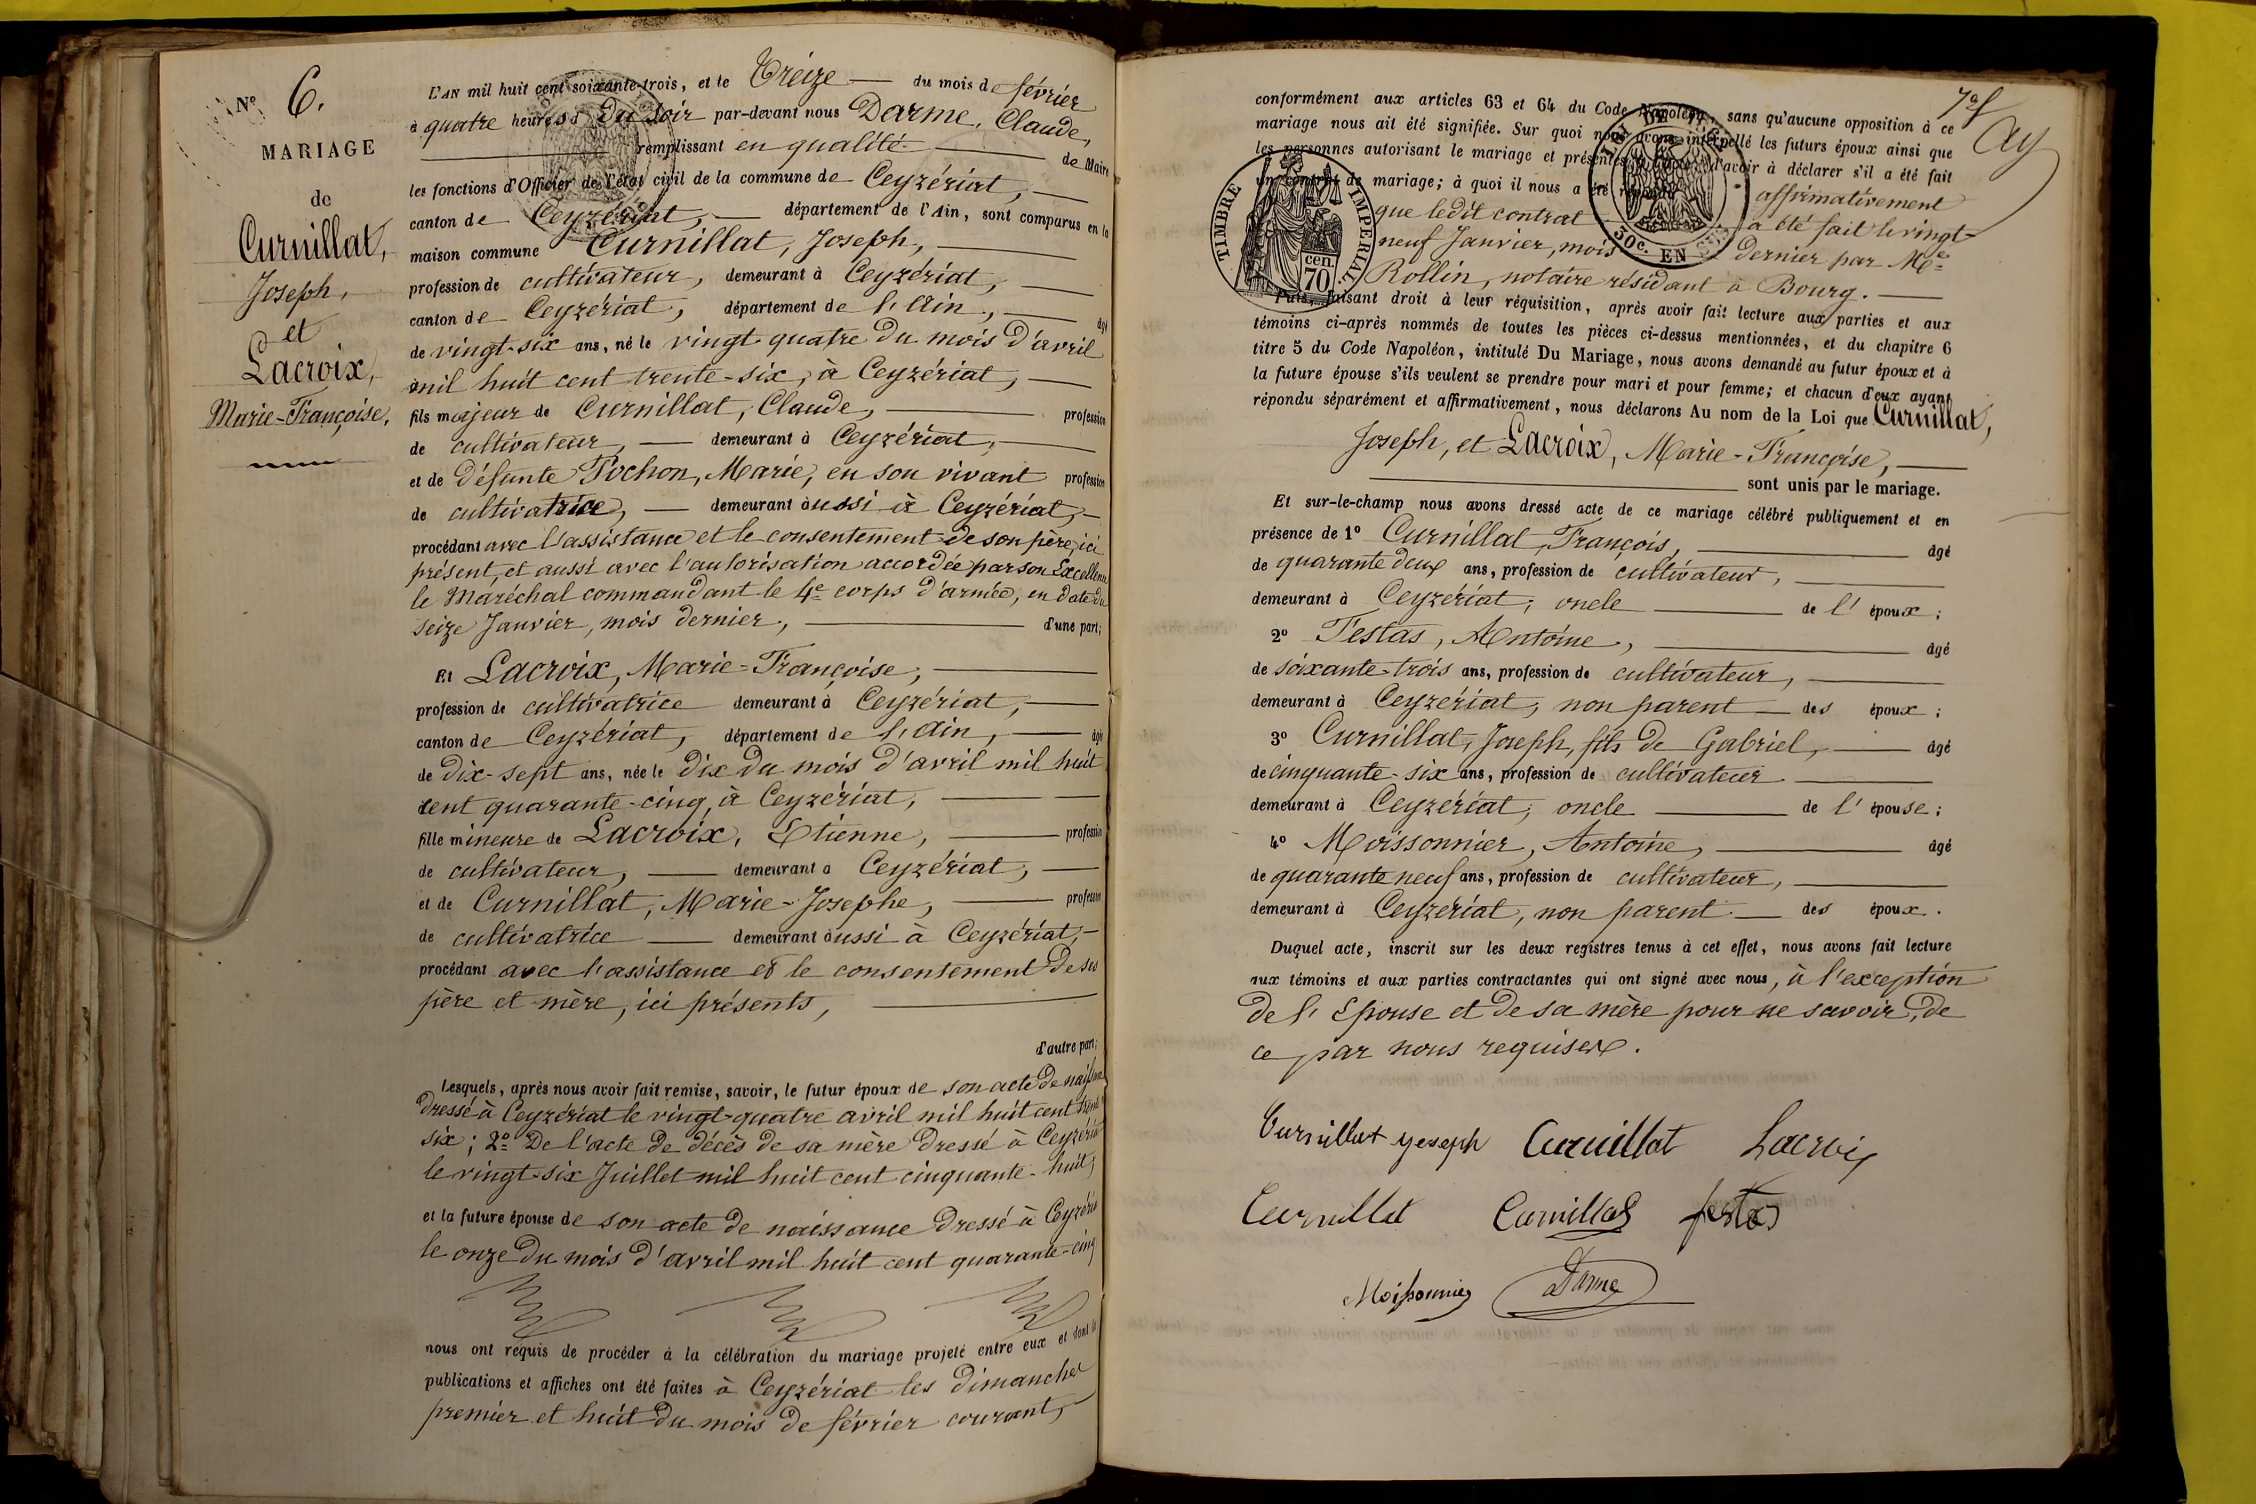 N° 6.
MARIAGE
de
Curnillat,
Joseph,
et
Lacroix,
Marie-Françoise.
L'AN mil huit cent soixante-trois, et le Treize du mois de février
à quatre heures du soir par-devant nous Darme, Claude,
remplissant en qualité de Maire
les fonctions d'Officier de l'état civil de la commune de Ceyzériat,
canton de Ceyzériat, département de l'Ain, sont comparus en la
maison commune Curnillat, Joseph,
profession de cultivateur, demeurant à Ceyzériat,
canton de Ceyzériat, département de l'Ain, âgé
de vingt-six ans, né le vingt quatre du mois d'avril
mil huit cent trente-six, à Ceyzériat,
fils majeur de Curnillat, Claude, profession
de cultivateur, demeurant à Ceyzériat,
et de défunte Pochon, Marie, en son vivant profession
de cultivatrice, demeurant aussi à Ceyzériat,
procédant avec l'assistance et le consentement de son père, ici
présent, et aussi avec l'autorisation accordée par son Excellence
le Maréchal commandant le 4e corps d'armée, en date du
seize Janvier, mois dernier, d'une part;
Et Lacroix, Marie-Françoise,
profession de cultivatrice demeurant à Ceyzériat,
canton de Ceyzériat, département de l'Ain, âgée
de dix-sept ans, née le dix du mois d'avril mil huit
cent quarante-cinq, à Ceyzériat,
fille mineure de Lacroix, Etienne, profession
de cultivateur, demeurant à Ceyzériat,
et de Curnillat, Marie-Josephe, profession
de cultivatrice demeurant aussi à Ceyzériat,
procédant avec l'assistance et le consentement de ses
père et mère, ici présents,
d'autre part;
Lesquels, après nous avoir fait remise, savoir, le futur époux de son acte de naissance
dressé à Ceyzériat le vingt-quatre avril mil huit cent trente
six; 2° De l'acte de décès de sa mère dressé à Ceyzériat
le vingt-six Juillet mil huit cent cinquante-huit;
et la future épouse de son acte de naissance dressé à Ceyzériat
le onze du mois d'avril mil huit cent quarante-cinq
nous ont requis de procéder à la célébration du mariage projeté entre eux et dont les
publications et affiches ont été faites à Ceyzériat les dimanches
premier et huit du mois de février courant,
7e f
conformément aux articles 63 et 64 du Code Napoléon, sans qu'aucune opposition à ce
mariage nous ait été signifiée. Sur quoi nous avons interpellé les futurs époux ainsi que
les personnes autorisant le mariage et présentes d'avoir à déclarer s'il a été fait
un contrat de mariage; à quoi il nous a été répondu affirmativement
que ledit contrat a été fait le vingt-
neuf Janvier, mois dernier par Me
Rollin, notaire résidant à Bourg.
TIMBRE IMPERIAL
70 cen.
30c. EN
Puis, faisant droit à leur réquisition, après avoir fait lecture aux parties et aux
témoins ci-après nommés de toutes les pièces ci-dessus mentionnées, et du chapitre 6
titre 5 du Code Napoléon, intitulé Du Mariage, nous avons demandé au futur époux et à
la future épouse s'ils veulent se prendre pour mari et pour femme; et chacun d'eux ayant
répondu séparément et affirmativement, nous déclarons Au nom de la Loi que Curnillat,
Joseph, et Lacroix, Marie-Françoise,
sont unis par le mariage.
Et sur-le-champ nous avons dressé acte de ce mariage célébré publiquement et en
présence de 1° Curnillat, François, âgé
de quarante deux ans, profession de cultivateur,
demeurant à Ceyzériat; oncle de l'époux;
2° Festas, Antoine, âgé
de soixante-trois ans, profession de cultivateur,
demeurant à Ceyzériat, non parent des époux;
3° Curnillat, Joseph, fils de Gabriel, âgé
de cinquante-six ans, profession de cultivateur
demeurant à Ceyzériat, oncle de l'épouse;
4° Moissonnier, Antoine, âgé
de quarante neuf ans, profession de cultivateur,
demeurant à Ceyzériat, non parent des époux.
Duquel acte, inscrit sur les deux registres tenus à cet effet, nous avons fait lecture
aux témoins et aux parties contractantes qui ont signé avec nous, à l'exception
de l'Epouse et de sa mère pour ne savoir, de
ce par nous requises.
Curnillat yoseph Curnillat Lacroix
Curnillat Curnillat festas
Moissonnier Darme